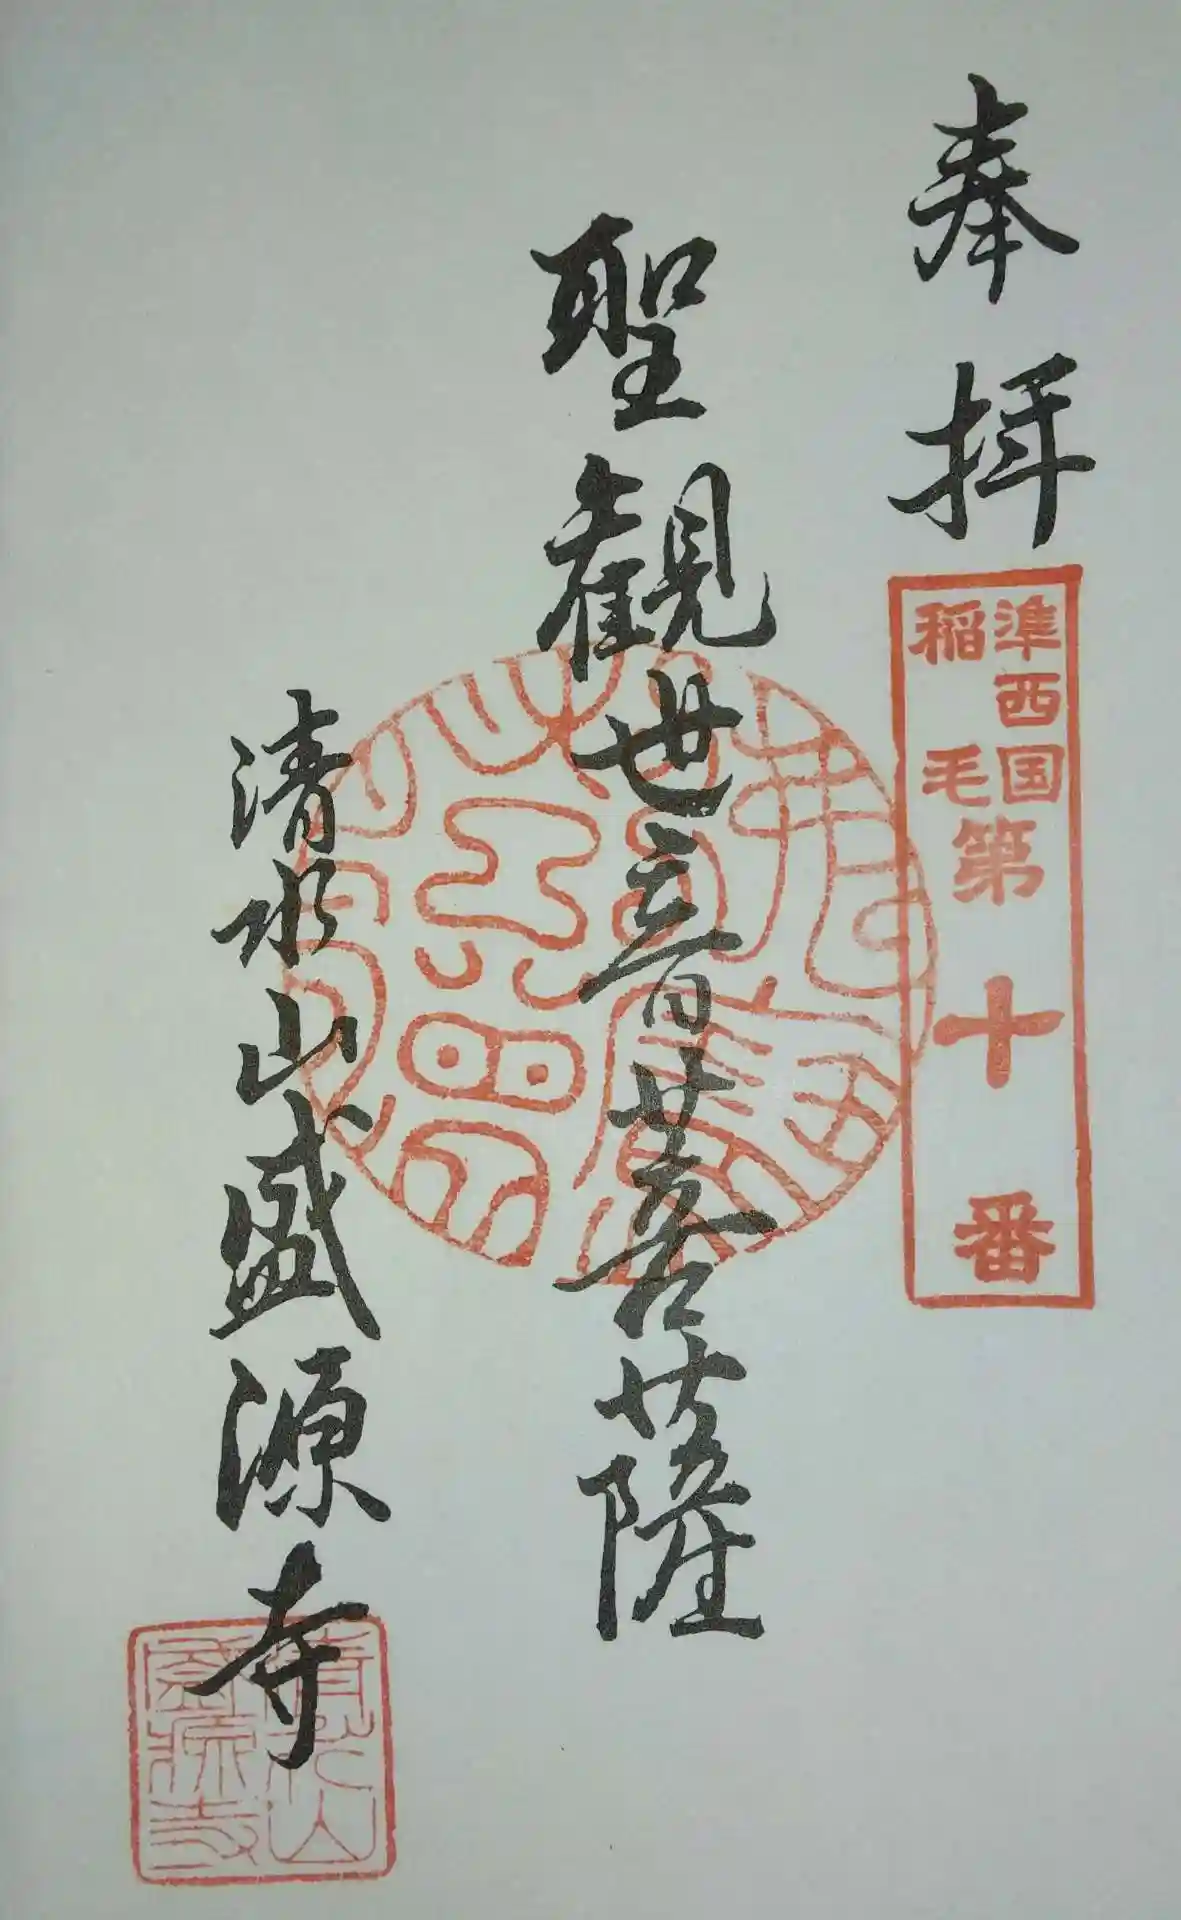 奉拝
準西国
稲毛
第十番
聖観世音菩薩
清水山盛源寺